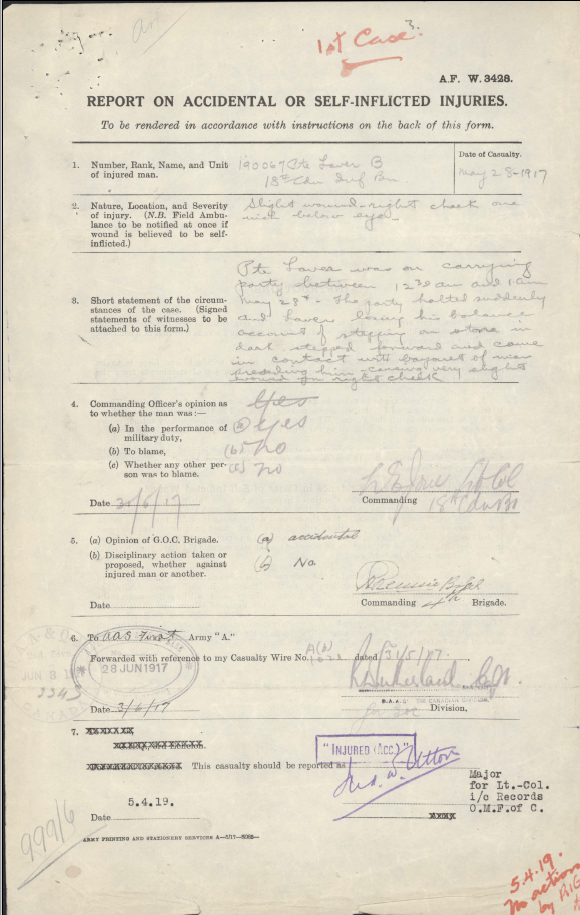 1st Case
3.
A.F. W. 3428.
REPORT ON ACCIDENTAL OR SELF-INFLICTED INJURIES.
To be rendered in accordance with instructions on the back of this form.
1. Number, Rank, Name, and Unit of injured man.
190067 Pte Laver B
18th Cdn Inf Bn
Date of Casualty.
May 28-1917
2. Nature, Location, and Severity of injury. (N.B. Field Ambulance to be notified at once if wound is believed to be self-inflicted.)
Slight wound-right cheek one
inch below eye-
3. Short statement of the circumstances of the case. (Signed statements of witnesses to be attached to this form.)
Pte Laver was on carrying
party between 12 30 am and 1 am
May 28th - The party halted suddenly
and Laver losing his balance
account of stepping on stone in
dark stepped forward and came
in contact with bayonet of man
preceding him - causing very slight
wound in right cheek
4. Commanding Officer's opinion as to whether the man was:—
Yes
(a) In the performance of military duty,
(a) Yes
(b) To blame,
(b) no
(c) Whether any other person was to blame.
(c) no
Date 31/5/17
Lt Col
Commanding 18th Cdn Bn
5. (a) Opinion of G.O.C. Brigade.
(a) accidental
(b) Disciplinary action taken or proposed, whether against injured man or another.
No
Date
Commanding 4th Brigade.
6. To First Army "A."
Forwarded with reference to my Casualty Wire No. dated 31/5/17.
JUN 3
28 JUN 1917
2243
Date 3/6/17
D.A.A.G. Division,
7. This casualty should be reported as
"INJURED (ACC.)"
Major
for Lt.-Col.
i/c Records
O.M.F. of C.
5.4.19.
Date
999/6
ARMY PRINTING AND STATIONERY SERVICES
5.4.19.
No action
by